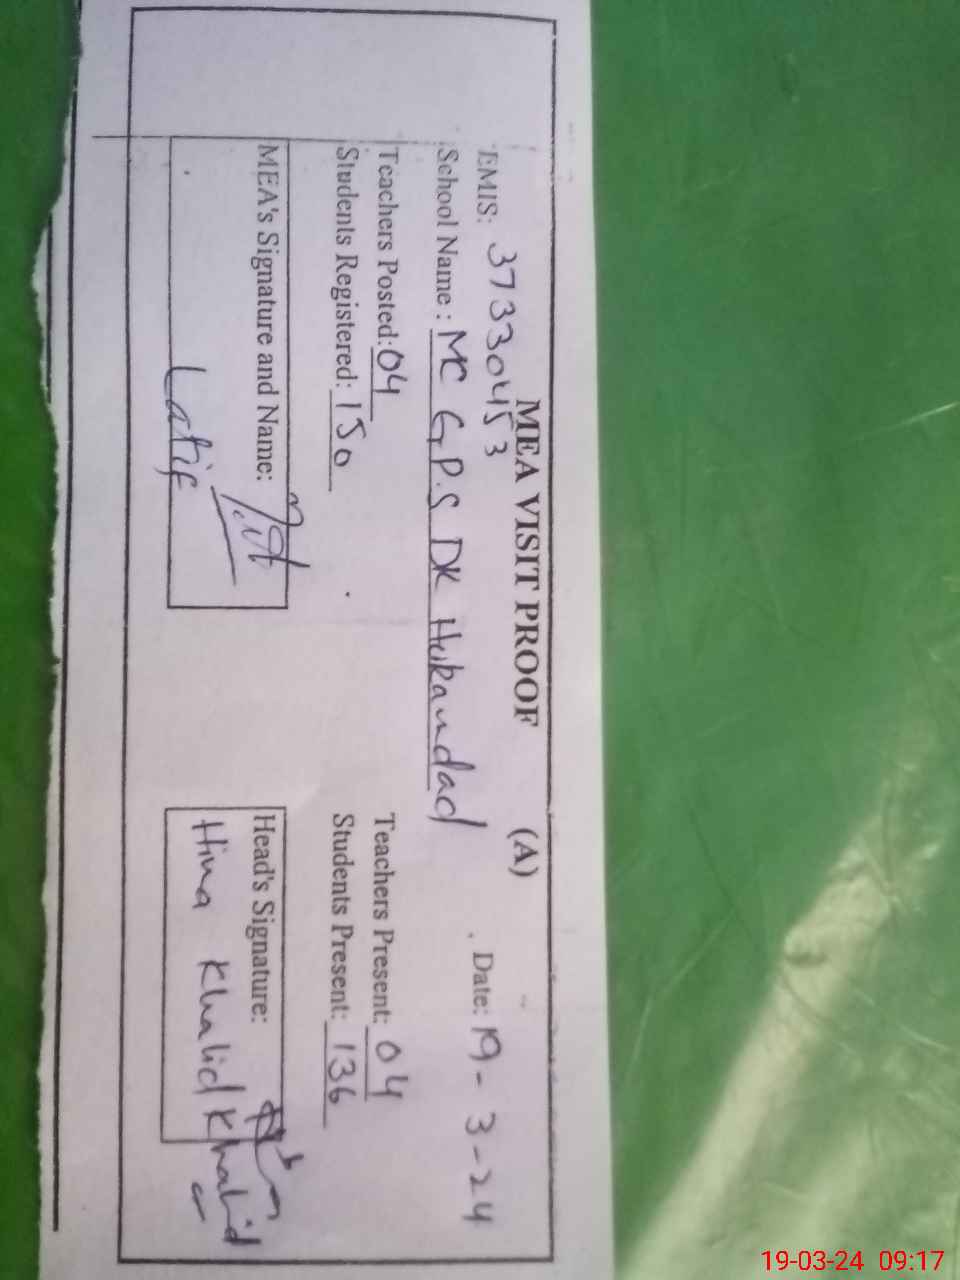 MEA VISIT PROOF (A)
EMIS: 37330453 Date: 19-3-24
School Name: MC G.P.S DK Hukamdad
Teachers Posted: 04 Teachers Present: 04
Students Registered: 150 Students Present: 136
MEA's Signature and Name: Head's Signature:
Latif Hina Khalid Khalid
19-03-24 09:17